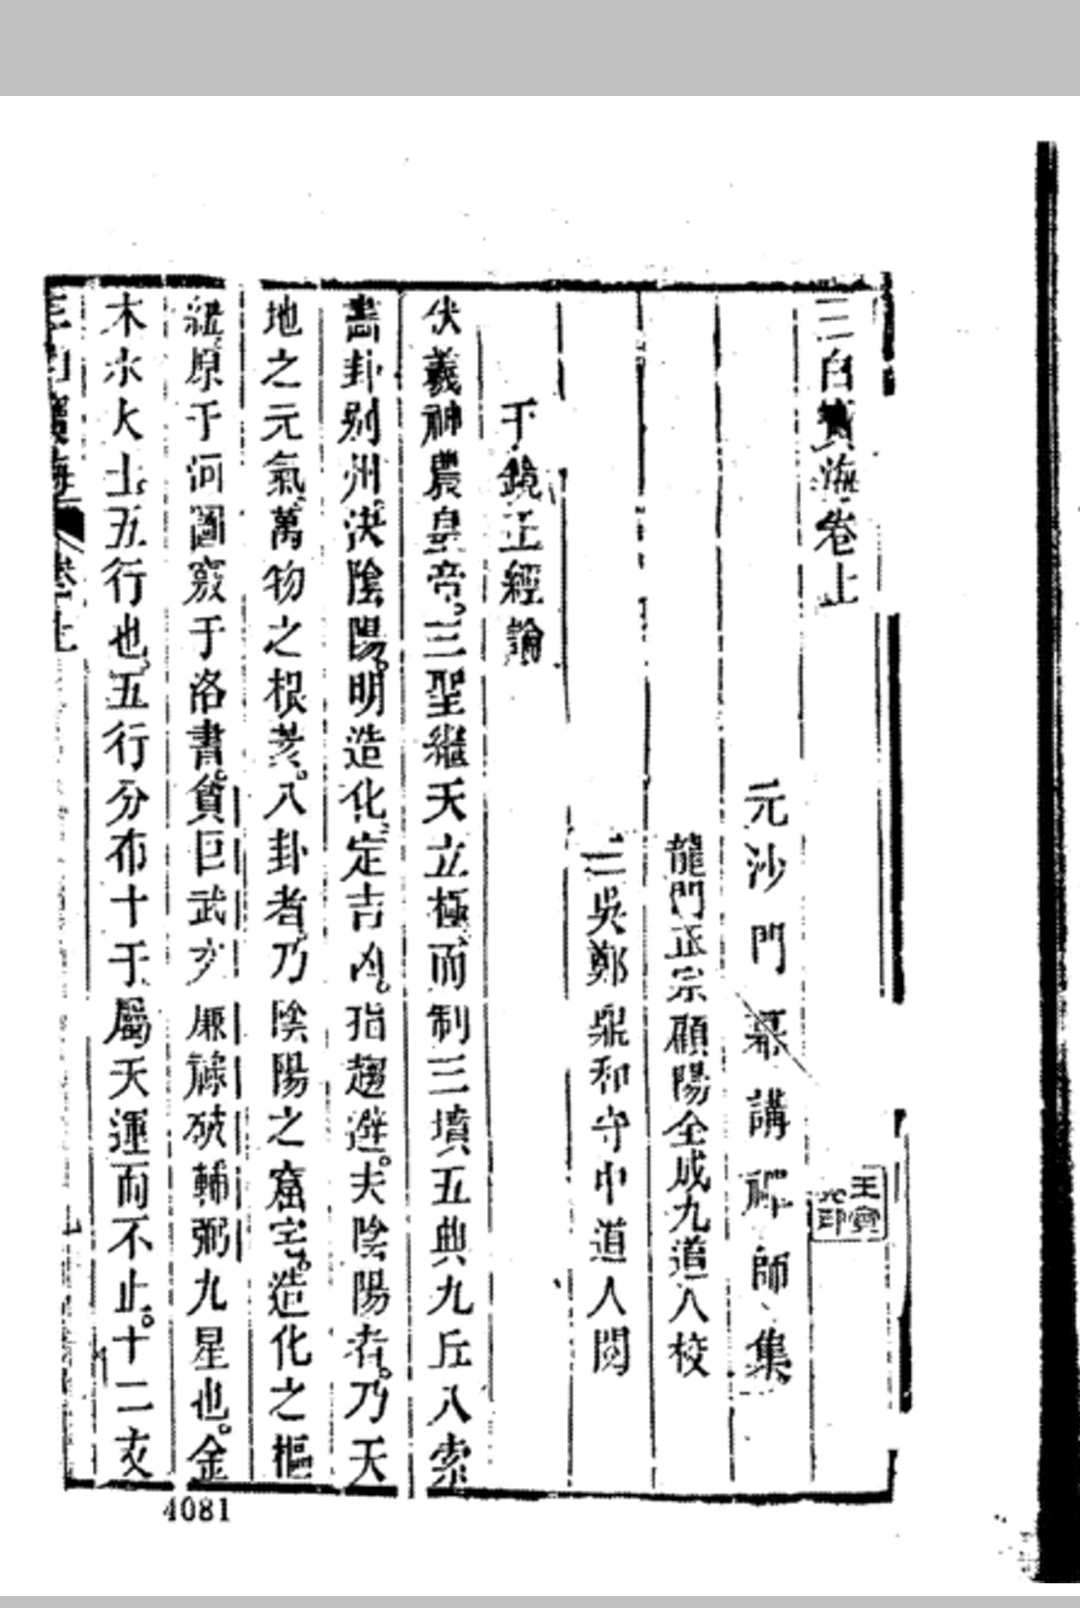 三白寶海卷上
元沙門幕講禪師集
龍門正宗顧陽全成九道人校
三吳鄭鼎和守中道人閱
千鏡正經論
伏羲神農皇帝。三聖繼天立極而制三墳五典九丘八索
畫卦别州。決陰陽。明造化。定吉凶。指趨避。夫陰陽者。乃天
地之元氣。萬物之根荄。八卦者。乃陰陽之窟宅。造化之樞
紐。原于河圖。竅于洛書。貪巨武文廉祿破輔弼九星也。金
木水火土。五行也。五行分布十干。屬天運而不止。十二支
三白寶海 卷上
王寶 印
4081